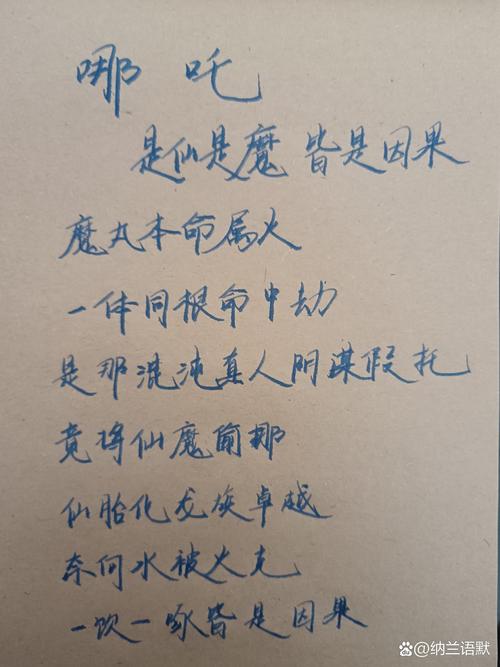 哪吒
是仙是魔 皆是因果
魔丸本命属火
一体同根命中劫
是那混沌真人阴谋假托
竟将仙魔偷挪
仙胎化龙族卓越
奈何水被火克
一饮一啄皆是因果
纳兰语默